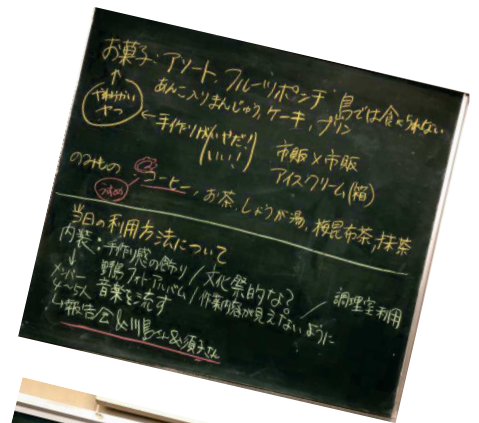 お菓子:アソート、フルーツポンチ 島では食べられない
↑ あんこ入りまんじゅう、ケーキ、プリン
やわらかいやつ ←手作りがいやだ!いい!
市販×市販
アイスクリーム(箱)
のみもの コーヒー、お茶、しょうが湯、梅昆布茶、抹茶
当日の利用方法について
内装:手作り感の飾り/文化祭的な? / 調理室利用
↓ フォトアルバム/作業内容が見えないように
メンバー 音楽を流す
4~5人
↳報告会&川島さん&須子さん